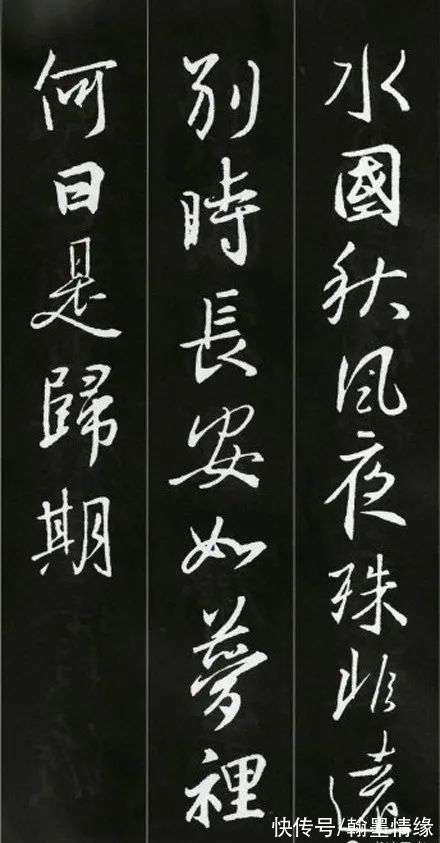 水國秋風夜殊非遠
別時長安如夢裡
何日是歸期
快传号/翰墨情缘